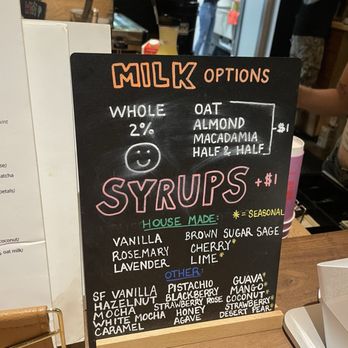 MILK OPTIONS
WHOLE
2%
OAT
ALMOND
MACADAMIA
HALF & HALF
$1
SYRUPS +$1
HOUSE MADE: *=SEASONAL
VANILLA BROWN SUGAR SAGE
ROSEMARY CHERRY*
LAVENDER LIME*
OTHER:
SF VANILLA PISTACHIO GUAVA*
HAZELNUT BLACKBERRY MANGO*
MOCHA STRAWBERRY ROSE COCONUT*
WHITE MOCHA HONEY STRAWBERRY*
CARAMEL AGAVE DESERT PEAR*